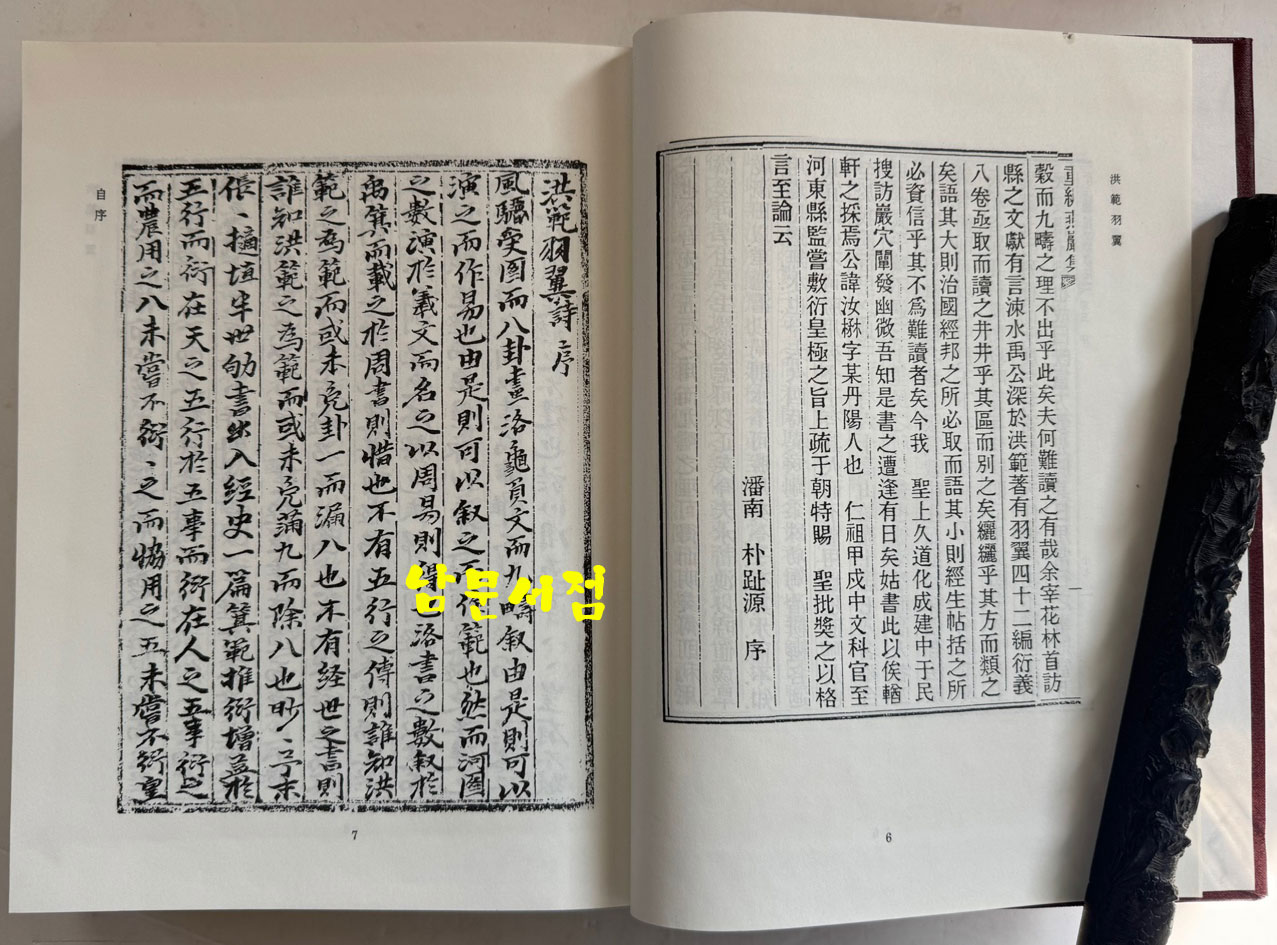 洪範羽翼
重編燕巖集
一
穀而九疇之理不出乎此矣夫何難讀之有哉余宰花林首訪
縣之文獻有言涑水禹公深於洪範著有羽翼四十二編衍義
八卷亟取而讀之井井乎其區而別之矣纚纚乎其方而類之
矣語其大則治國經邦之所必取而語其小則經生帖括之所
必資信乎其不爲難讀者矣今我 聖上久道化成建中于民
搜訪巖穴闡發幽微吾知是書之遭逢有日矣姑書此以俟輶
軒之採焉公諱汝楙字某丹陽人也 仁祖甲戌中文科官至
河東縣監嘗敷衍皇極之旨上疏于朝特賜 聖批奬之以格
言至論云
潘南 朴趾源 序
6
洪範羽翼詩序
風驪受圖而八卦畫洛龜負文而九疇叙由是則可以
演之而作易也由是則可以叙之而作範也然而河圖
之數演於羲文而名之以周易則得也洛書之數叙於
禹箕而載之於周書則惜也不有五行之傳則誰知洪
範之爲範而或未免卦一而漏八也不有経世之書則
誰知洪範之爲範而或未免蒲九而除八也眇、予末
倀、擿埴半世劬書出入經史一篇箕範推衍增益於
五行而衍在天之五行於五事而衍在人之五事衍之
而農用之八未嘗不衍、之而恊用之五未嘗不衍皇
自序
7
남문서점